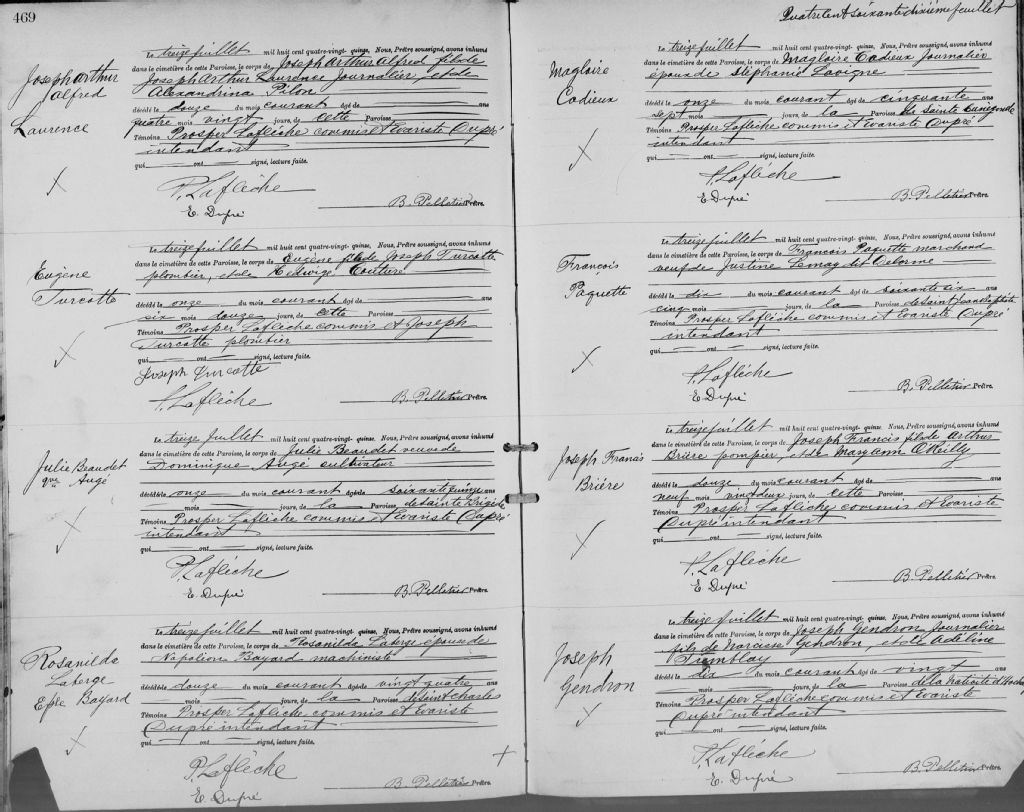 469
Joseph Arthur
Alfred
Laurence
Le treize juillet mil huit cent quatre-vingt-quinze, Nous, Prêtre soussigné, avons inhumé
dans le cimetière de cette Paroisse, le corps de Joseph Arthur Alfred fils de
Joseph Arthur Laurence journalier, et de
Alexandrina Pilon
décédé le douze du mois courant âgé de ans
quatre mois vingt jours, de cette Paroisse
Témoins Prosper Laflèche commis et Evariste Dupré
intendant
qui ont signé, lecture faite.
P. Laflèche
E. Dupré
B. Pelletier Prêtre.
Eugène
Turcotte
Le treize juillet mil huit cent quatre-vingt-quinze, Nous, Prêtre soussigné, avons inhumé
dans le cimetière de cette Paroisse, le corps de Eugène fils de Joseph Turcotte
plombier, et de Hedwige Couture
décédé le onze du mois courant âgé de ans
six mois douze jours, de cette Paroisse
Témoins Prosper Laflèche commis et Joseph
Turcotte plombier
qui ont signé, lecture faite.
Joseph Turcotte
P. Laflèche
B. Pelletier Prêtre.
Julie Beaudet
Augé
Le treize juillet mil huit cent quatre-vingt-quinze, Nous, Prêtre soussigné, avons inhumé
dans le cimetière de cette Paroisse, le corps de Julie Beaudet veuve de
Dominique Augé cultivateur
décédé le onze du mois courant âgé de soixante quinze ans
mois jours, de la Paroisse de Sainte Brigide
Témoins Prosper Laflèche commis et Evariste Dupré
intendant
qui ont signé, lecture faite.
P. Laflèche
E. Dupré
B. Pelletier Prêtre.
Rosanilda
Laberge
Bayard
Le treize juillet mil huit cent quatre-vingt-quinze, Nous, Prêtre soussigné, avons inhumé
dans le cimetière de cette Paroisse, le corps de Rosanilda Laberge épouse de
Napoléon Bayard machiniste
décédé le douze du mois courant âgé de vingt quatre ans
mois jours, de la Paroisse de Saint Charles
Témoins Prosper Laflèche commis et Evariste
Dupré intendant
qui ont signé, lecture faite.
P. Laflèche
E. Dupré
B. Pelletier Prêtre.
Quatrecent soixante dixième feuillet
Magloire
Cadieux
Le treize juillet mil huit cent quatre-vingt-quinze, Nous, Prêtre soussigné, avons inhumé
dans le cimetière de cette Paroisse, le corps de Magloire Cadieux journalier
époux de Stéphanie Lavigne
décédé le onze du mois courant âgé de cinquante ans
sept mois jours, de la Paroisse de Sainte Cunégonde
Témoins Prosper Laflèche commis et Evariste Dupré
intendant
qui ont signé, lecture faite.
P. Laflèche
E. Dupré
B. Pelletier Prêtre.
François
Paquette
Le treize juillet mil huit cent quatre-vingt-quinze, Nous, Prêtre soussigné, avons inhumé
dans le cimetière de cette Paroisse, le corps de François Paquette marchand
veuf de Justine Lemay dit Delorme
décédé le dix du mois courant âgé de soixante six ans
cinq mois jours, de la Paroisse de Saint Jean Baptiste
Témoins Prosper Laflèche commis et Evariste Dupré
intendant
qui ont signé, lecture faite.
P. Laflèche
E. Dupré
B. Pelletier Prêtre.
Joseph Francis
Brière
Le treize juillet mil huit cent quatre-vingt-quinze, Nous, Prêtre soussigné, avons inhumé
dans le cimetière de cette Paroisse, le corps de Joseph Francis fils de Arthur
Brière pompier, et de Mary Ann O'Reilly
décédé le douze du mois courant âgé de ans
neuf mois vingt deux jours, de cette Paroisse
Témoins Prosper Laflèche commis et Evariste
Dupré intendant
qui ont signé, lecture faite.
P. Laflèche
E. Dupré
B. Pelletier Prêtre.
Joseph
Gendron
Le treize juillet mil huit cent quatre-vingt-quinze, Nous, Prêtre soussigné, avons inhumé
dans le cimetière de cette Paroisse, le corps de Joseph Gendron journalier
fils de Narcisse Gendron, et de Adeline
Tremblay
décédé le dix du mois courant âgé de vingt ans
mois jours, de la Paroisse de la Nativité d'Hoche
Témoins Prosper Laflèche commis et Evariste
Dupré intendant
qui ont signé, lecture faite.
P. Laflèche
E. Dupré
B. Pelletier Prêtre.